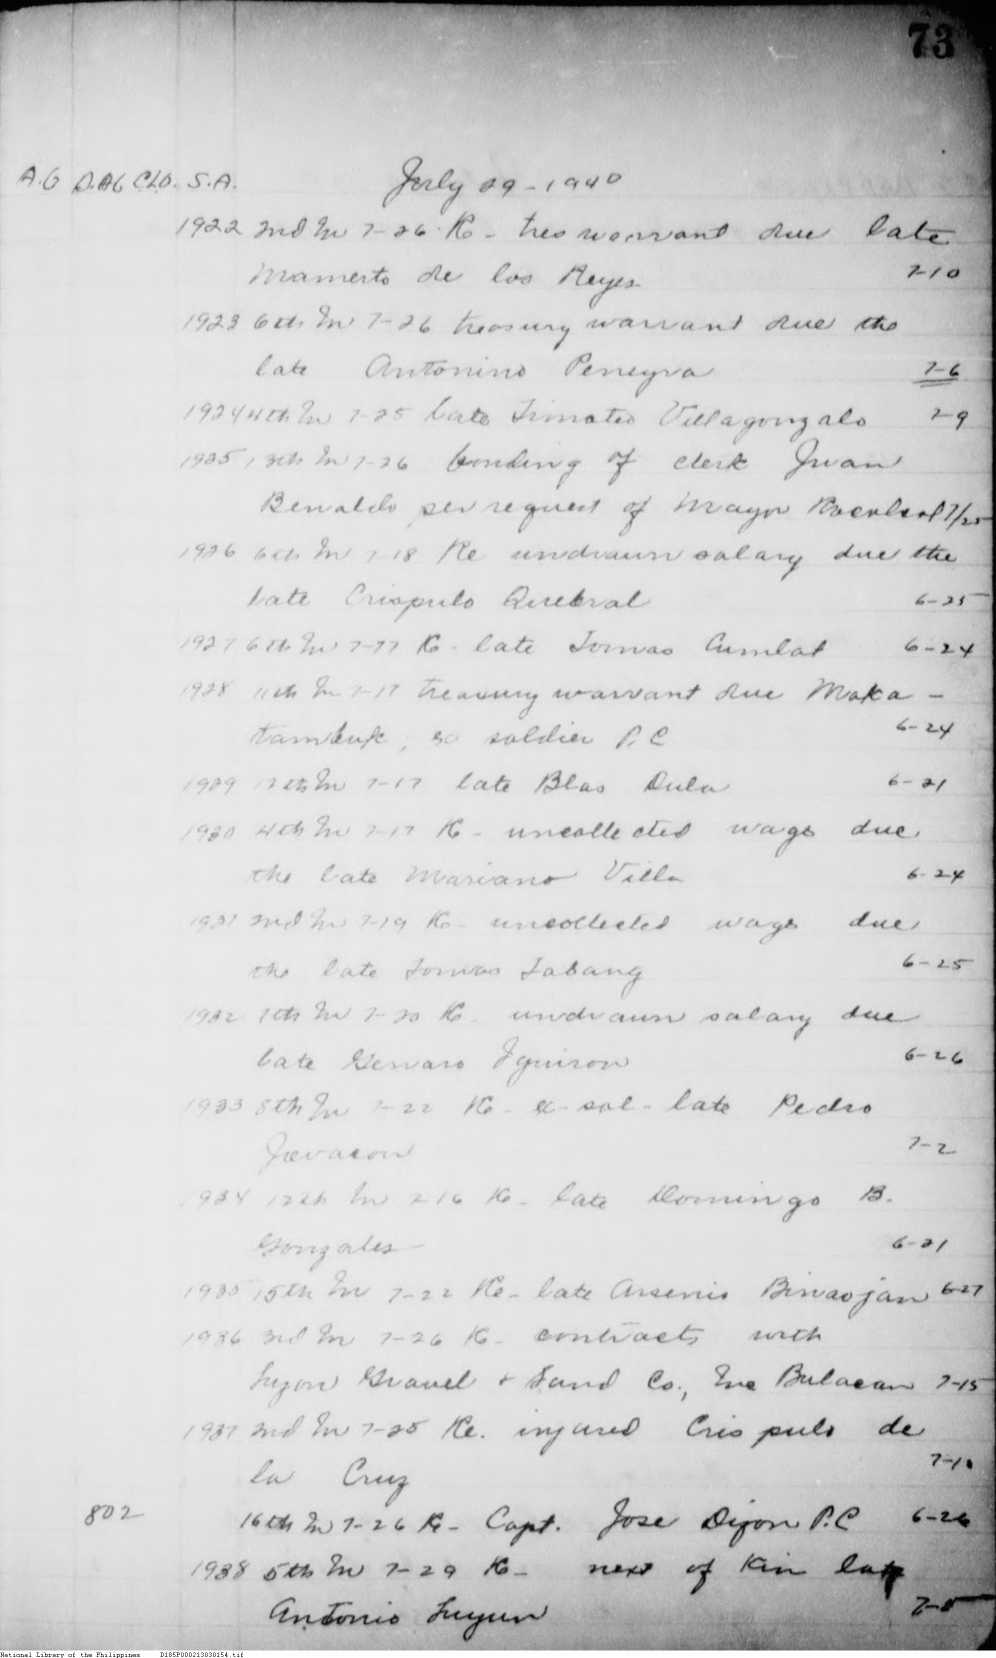 73
A.G D.AG CLD. S.A. July 29-1940
1922 2nd In 7-26 Re- tres warrant due late
Mamerto de los Reyes 7-10
1923 6th In 7-26 treasury warrant due the
late Antonino Peneyra 7-6
1924 4th In 7-25 late Timoteo Villagonzalo 7-9
1925 13th In 7-26 bonding of clerk Juan
Benaldo per request of Mayor 7/25
1926 6th In 7-18 Re undrawn salary due the
late Crispulo Quebral 6-25
1927 6th In 7-17 Re- late Tomas Cumlat 6-24
1928 11th In 7-17 treasury warrant due Maka-
tambuk, ex soldier P.C 6-24
1929 12th In 7-17 late Blas Dula 6-21
1930 4th In 7-17 Re- uncollected wage due
the late Mariano Villa 6-24
1931 2nd In 7-19 Re- uncollected wage due
the late Tomas Tabang 6-25
1932 7th In 7-20 Re- undrawn salary due
late Genaro 6-26
1933 8th In 7-22 Re- ex-sol- late Pedro
7-2
1934 12th In 7-16 Re- late Domingo B.
Gonzales 6-21
1935 15th In 7-22 Re- late Arsenio Binaojan 6-27
1936 3rd In 7-26 Re- contracts with
Luzon Gravel & Sand Co., Inc Bulacan 7-15
1937 2nd In 7-25 Re. injured Crispulo de
la Cruz 7-10
802 16th In 7-26 Re- Capt. Jose Dizon P.C 6-26
1938 5th In 7-29 Re- next of kin late
Antonio Luyun 7-5
National Library of the Philippines D185P000213030154.tif